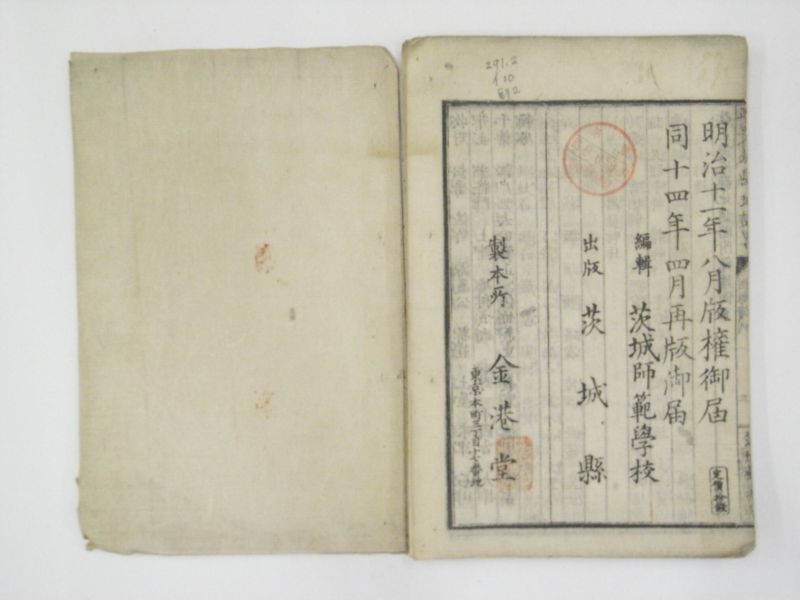 明治十一年八月版權御届
同十四年四月再版御届
編輯 茨城師範學校
出版 茨城縣
製本所 金港堂
東京本町三丁目十七番地
定價拾錢
291.2
イ10